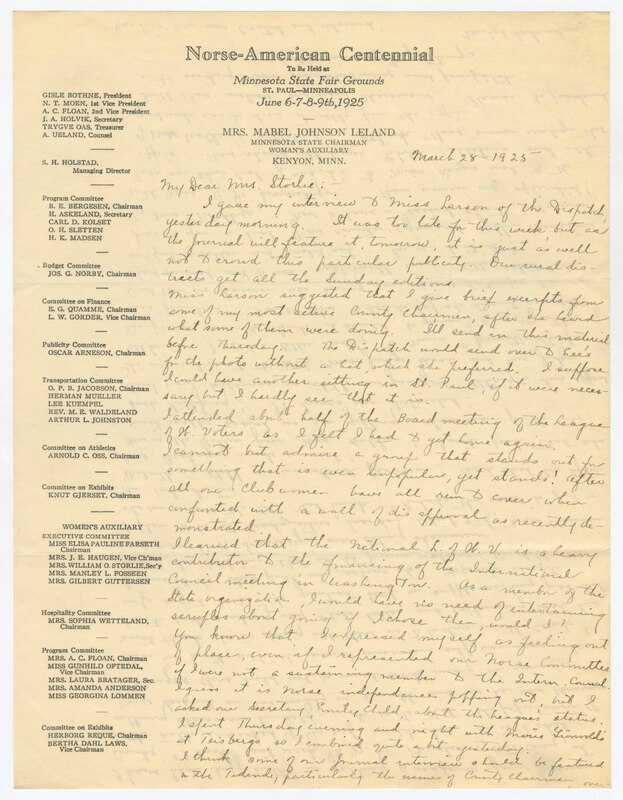 Norse-American Centennial
To Be Held at
Minnesota State Fair Grounds
ST. PAUL—MINNEAPOLIS
June 6-7-8-9th, 1925
MRS. MABEL JOHNSON LELAND
MINNESOTA STATE CHAIRMAN
WOMAN'S AUXILIARY
KENYON, MINN.
GISLE BOTHNE, President
N. T. MOEN, 1st Vice President
A. C. FLOAN, 2nd Vice President
J. A. HOLVIK, Secretary
TRYGVE OAS, Treasurer
A. UELAND, Counsel
S. H. HOLSTAD,
Managing Director
Program Committee
B. E. BERGESEN, Chairman
H. ASKELAND, Secretary
CARL D. KOLSET
O. H. SLETTEN
H. K. MADSEN
Budget Committee
JOS. G. NORBY, Chairman
Committee on Finance
E. G. QUAMME, Chairman
L. W. GORDER, Vice Chairman
Publicity Committee
OSCAR ARNESON, Chairman
Transportation Committee
O. P. B. JACOBSON, Chairman
HERMAN MUELLER
LEE KUEMPEL
REV. M. E. WALDELAND
ARTHUR L. JOHNSTON
Committee on Athletics
ARNOLD C. OSS, Chairman
Committee on Exhibits
KNUT GJERSET, Chairman
WOMEN'S AUXILIARY
EXECUTIVE COMMITTEE
MISS ELISA PAULINE FARSETH
Chairman
MRS. J. E. HAUGEN, Vice Ch'man
MRS. WILLIAM O. STORLIE, Sec'y
MRS. MANLEY L. FOSSEEN
MRS. GILBERT GUTTERSEN
Hospitality Committee
MRS. SOPHIA WETTELAND,
Chairman
Program Committee
MRS. A. C. FLOAN, Chairman
MISS GUNHILD OFTEDAL,
Vice Chairman
MRS. LAURA BRATAGER, Sec.
MRS. AMANDA ANDERSON
MISS GEORGINA LOMMEN
Committee on Exhibits
HERBORG REQUE, Chairman
BERTHA DAHL LAWS,
Vice Chairman
March 28 - 1925
My Dear Mrs. Storlie:
I gave my interview to Miss Larson of the Dispatch,
yesterday morning. It was too late for this week but as
the Journal will feature it, tomorrow, it is just as well
not to crowd this particular publicity. Our rural dis-
tricts get all the Sunday editions.
Miss Larson suggested that I give brief excerpts from
some of my most active County Chairmen, after she heard
what some of them were doing. I'll send in this material
before Thursday. The Dispatch would send over to Lee's
for the photo without a hat, which she preferred. I suppose
I could have another sitting in St. Paul, if it were neces-
sary but I hardly see that it is.
I attended about half of the Board meeting of the League
of W. Voters, as I felt I had to get home again.
I cannot but admire a group that stands out for
something that is even unpopular, yet stands! After
all our Club women have all run to cover when
confronted with a wall of disapproval as recently de-
monstrated.
I learned that the National L. of W. V. is a heavy
contributor to the financing of the International
Council meeting in Washington. As a member of the
State organization, I would have no need of entertaining
scruples about going if I chose then, would I?
You know that I expressed myself as feeling out
of place, even if I represented our Norse Committee,
if I were not a sustaining member to the Intern. Council.
I guess it is Norse independence popping out, but I
asked our Secretary, Emily Child, about the League's status.
I spent Thursday evening and night with Marie
at Teisbergs, so I combined quite a bit yesterday.
I think some of our Journal interview should be featured
in the Tidende, particularly the names of County Chairmen, over